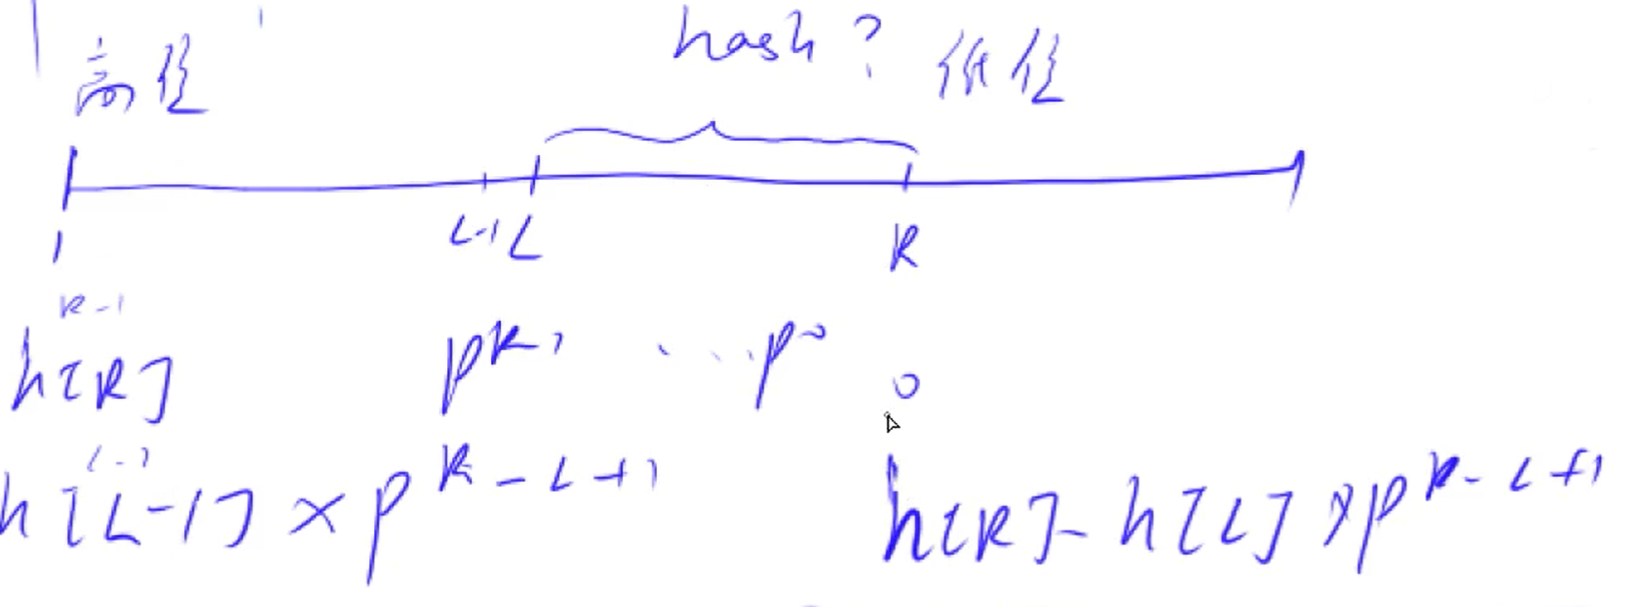 高位 hash? 低位
1 L-1 L R
R-1
h[R] p^{R-1} ... p^0 0
L-1
h[L-1] × p^{R-L+1} h[R]-h[L]×p^{R-L+1}